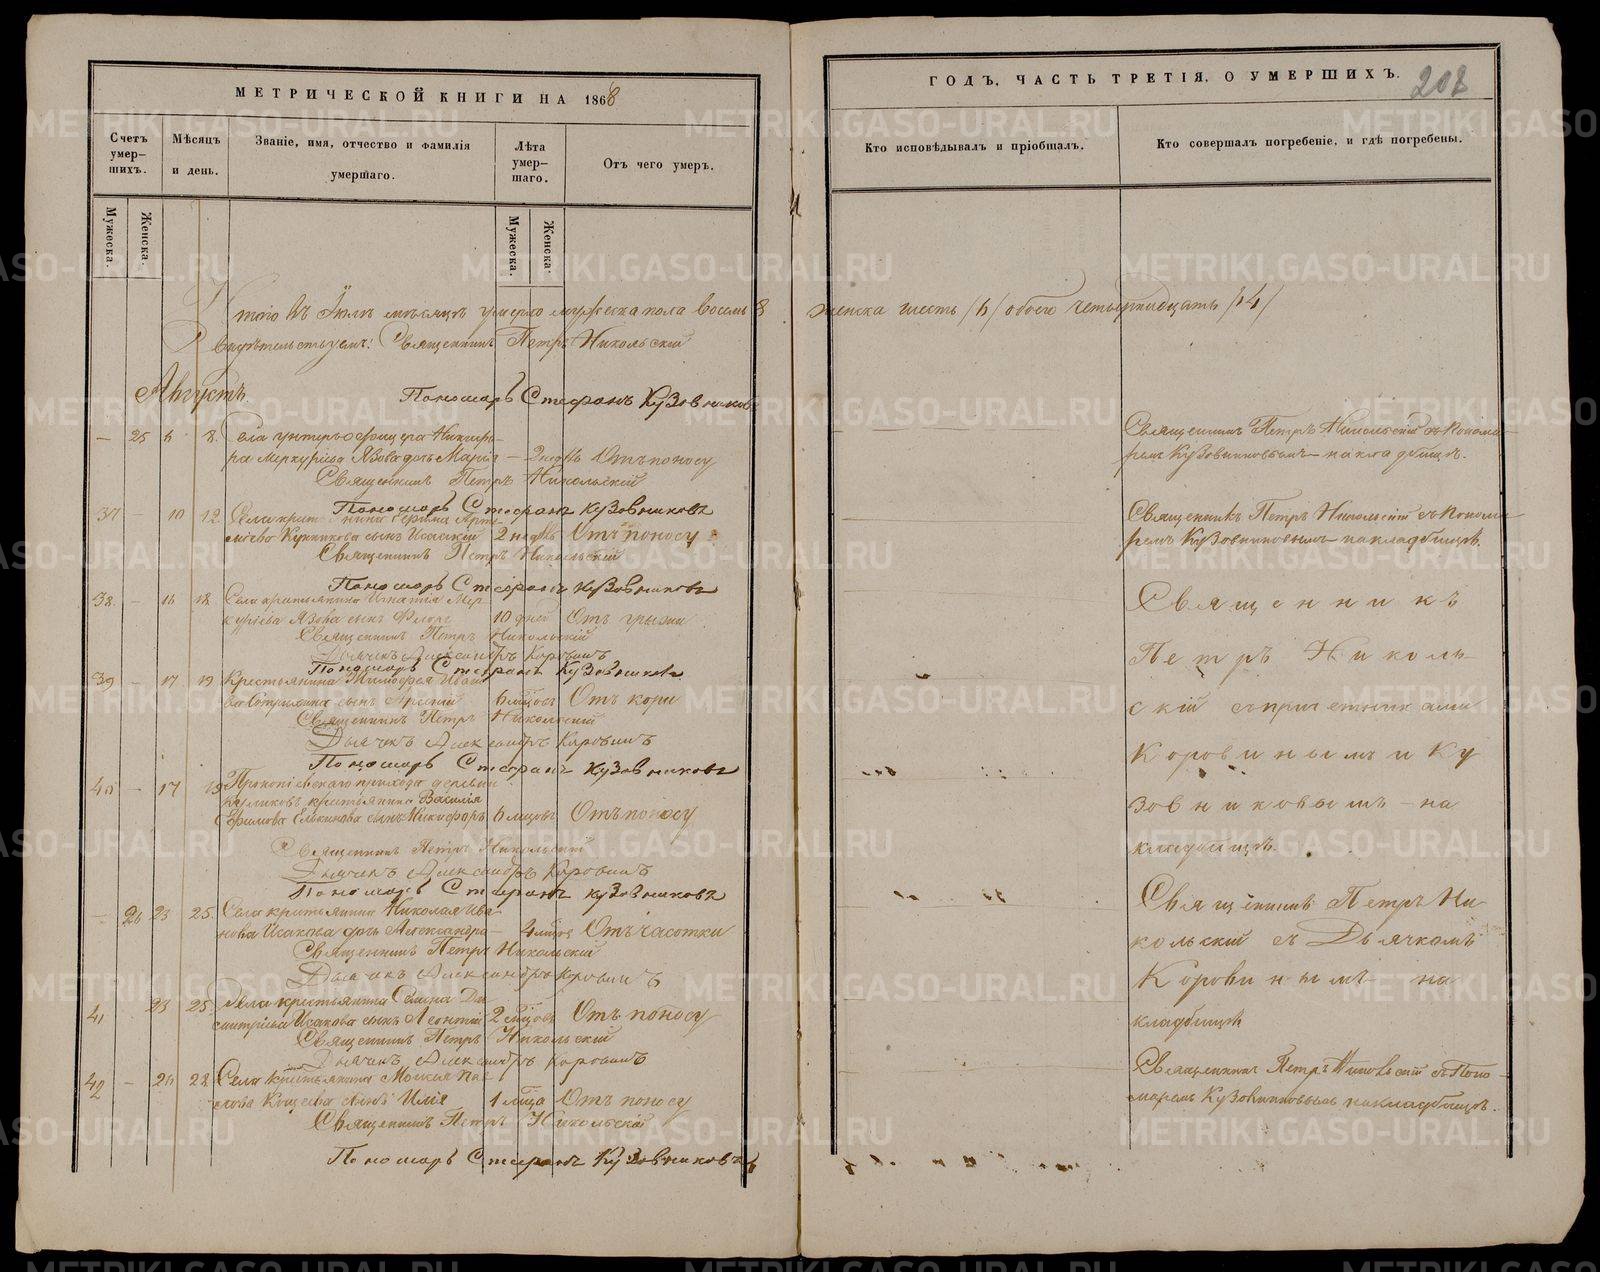 МЕТРИЧЕСКОЙ КНИГИ НА 1868
Счетъ умер-шихъ.
Мѣсяцъ и день.
Званіе, имя, отчество и фамилія умершаго.
Лѣта умер-шаго.
Отъ чего умеръ.
Мужеска.
Женска.
Мужеска.
Женска.
Итого въ Іюлѣ мѣсяцѣ умерло мужеска пола восемь 8
Священникъ Петръ Никольскій
Августъ.
Пономарь Стефанъ Кузовниковъ
— 25 6 8. Села унтеръ офицера Никифо-
ра Меркурьева Язова дочь Марія — 2 недѣль Отъ поносу
Священникъ Петръ Никольскій
Пономарь Стефанъ Кузовниковъ
37 — 10 12. Села крестьянина Ефима Арте-
сынъ 2 недѣль Отъ поносу
Священникъ Петръ Никольскій
Пономарь Стефанъ Кузовниковъ
38. — 16 18. Села крестьянина Игнатія Мер-
курьева Язова сынъ Флоръ 10 дней Отъ грыжи
Священникъ Петръ Никольскій
Дьячекъ Александръ Коровинъ
Пономарь Стефанъ Кузовниковъ
39 — 17 19 Крестьянина Тимофея Ивано-
ва сынъ 6 мѣсяцовъ Отъ кори
Священникъ Петръ Никольскій
Дьячекъ Александръ Коровинъ
Пономарь Стефанъ Кузовниковъ
40 — 17 Прокопіевскаго прихода деревни
крестьянина Василія
Ефимова сынъ Никифоръ 6 мѣсяцовъ Отъ поносу
Священникъ Петръ Никольскій
Дьячекъ Александръ Коровинъ
Пономарь Стефанъ Кузовниковъ
— 26 23 25. Села крестьянина Николая Ива-
нова Исакова дочь Александра — Отъ чесотки
Священникъ Петръ Никольскій
Дьячекъ Александръ Коровинъ
41 23 25. Села крестьянина Ди-
митріева Исакова сынъ Леонтій 2 мѣсяцовъ Отъ поносу
Священникъ Петръ Никольскій
Дьячекъ Александръ Коровинъ
42 — 20 22 Села крестьянина Моисея Пав-
лова сынъ Илія 1 мѣсяца Отъ поносу
Священникъ Петръ Никольскій
Пономарь Стефанъ Кузовниковъ
ГОДЪ, ЧАСТЬ ТРЕТІЯ, О УМЕРШИХЪ.
208
Кто исповѣдывалъ и пріобщалъ.
Кто совершалъ погребеніе, и гдѣ погребены.
женска шесть /6/ обоего четырнадцать /14/
Священникъ Петръ Никольскій съ Понома-
ремъ Кузовниковымъ на кладбищѣ.
Священникъ Петръ Никольскій съ Понома-
ремъ Кузовниковымъ на кладбищѣ.
Священникъ
Петръ Николь-
скій съ причетниками
Коровинымъ и Ку
зовниковымъ — на
кладбищѣ.
Священникъ Петръ Ни-
кольскій съ Дьячкомъ
Коровинымъ — на
кладбищѣ
Священникъ Петръ Никольскій съ Поно-
маремъ Кузовниковымъ на кладбищѣ.
METRIKI.GASO-URAL.RU